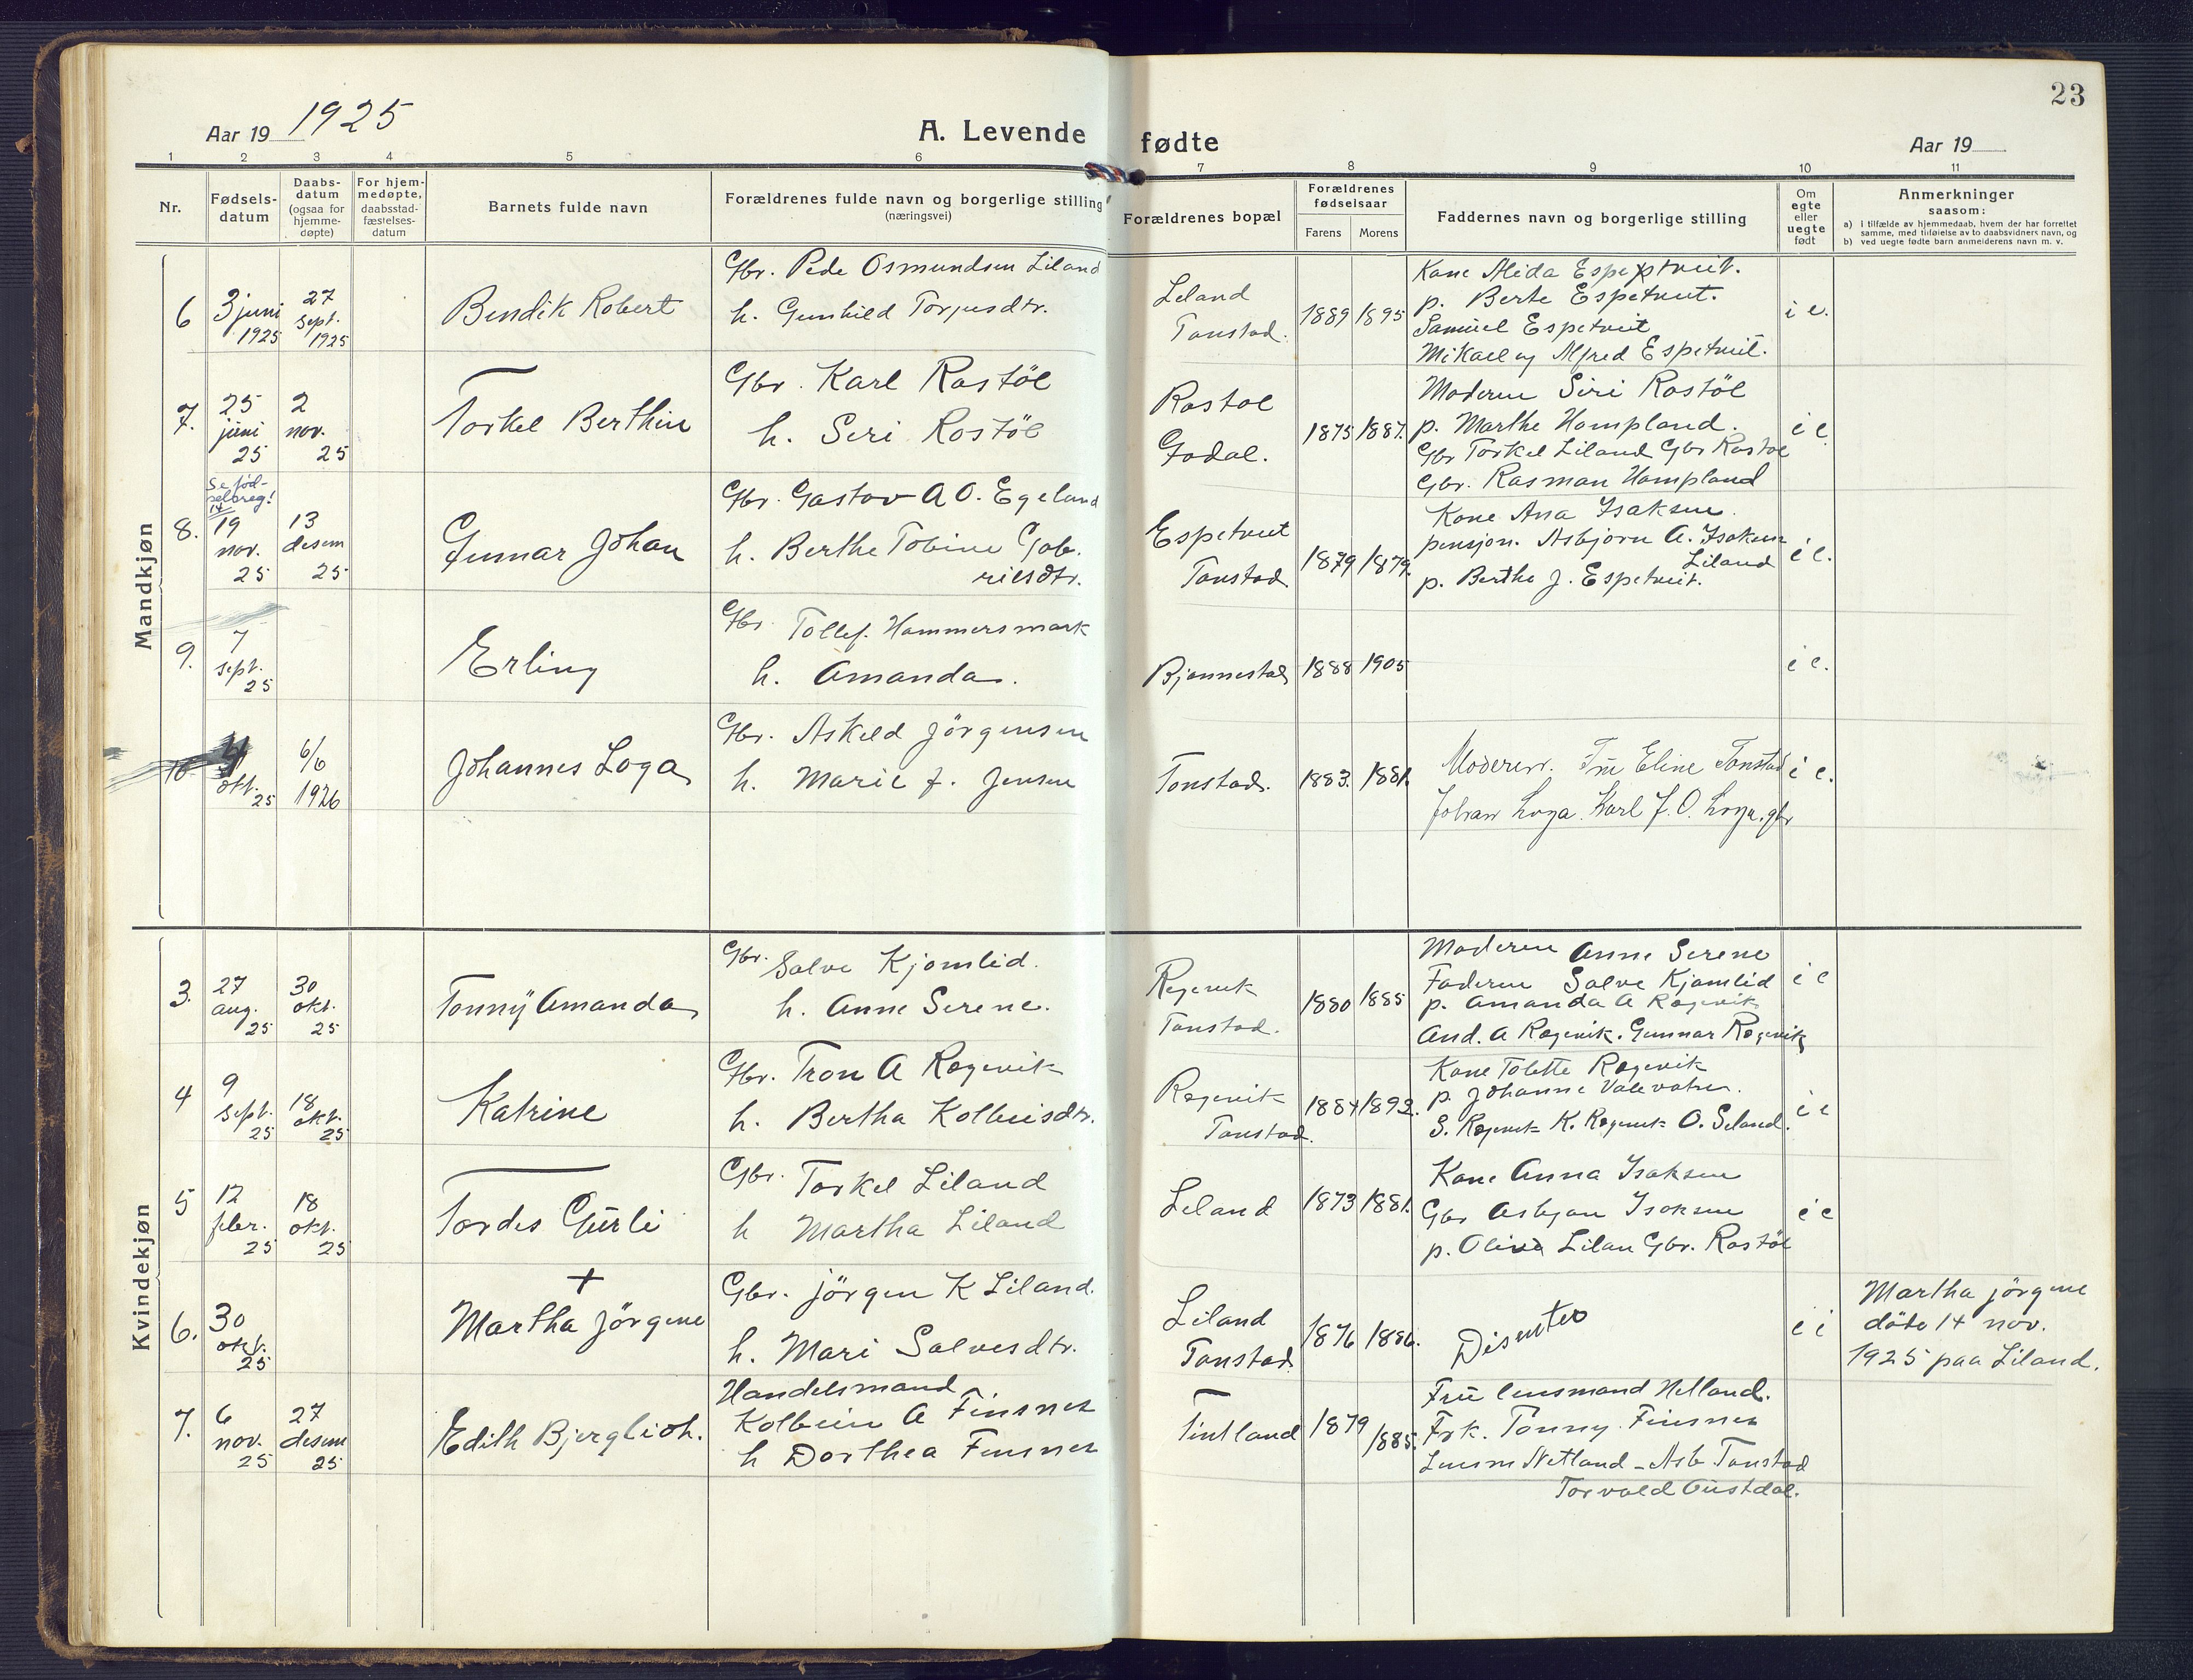 23
Aar 19 1925
A. Levende fødte
Aar 19
1 2 3 4 5 6 7 8 9 10 11
Nr.
Fødsels-
datum
Daabs-
datum
(ogsaa for
hjemme-
døpte)
For hjem-
medøpte,
daabsstad-
fæstelses-
datum
Barnets fulde navn
Forældrenes fulde navn og borgerlige stilling
(næringsvei)
Forældrenes bopæl
Forældrenes
fødselsaar
Farens Morens
Faddernes navn og borgerlige stilling
Om
egte
eller
uegte
født
Anmerkninger
saasom:
a) i tilfælde av hjemmedaab, hvem der har forrettet
samme, med tilføielse av to daabsvidners navn, og
b) ved uegte fødte barn anmelderens navn m. v.
Mandkjøn
6
3 juni
1925
27
sept.
1925
Bendik Robert
Gbr. Pede Osmundsen Liland
h. Gunhild Torjusdtr.
Liland
Tonstad.
1889 1895
Kone Alida Espetveit.
p. Berte Espetveit.
Samüel Espetveit
Mikael og Alfred Espetveit.
i e.
7.
25
jüni
25
2
nov.
25
Torkel Berthin
Gbr. Karl Rostöl
h. Seri Rostöl
Rostöl
Godal.
1875 1887.
Moderen Siri Rostöl
p. Marthe Hompland.
Gbr Torkel Liland Gbr Rostöl
Gbr. Rasman Hompland
i e.
Se fød-
selsreg!
14
8.
19
nov.
25
13
desem
25
Gunnar Johan
Gbr. Gastov A O. Egeland
h. Berthe Tobine Gab.
rielsdtr.
Espetveit
Tonstad
1879 1879.
Kone Ana Isaksen.
pensjon. Asbjørn A. Isaksen
Liland
p. Berthe J. Espetveit.
i e.
9.
7
sept.
25
Erling
Gbr. Tollef. Hammersmark
h. Amanda.
Bjonnestad
1888 1905
i e.
10
4
okt.
25
6/6
1926
Johannes Loga
Gbr. Askeld Jörgensen
h. Marie J. Jensen
Tonstad.
1883. 1881.
Moderen. Frü Eline Tonstad
Johan Loga. Karl J. O. Loga. gbr
i e.
Kvindekjøn
3.
27
aug.
25
30
okt.
25
Tonny Amanda
Gbr. Salve Kjomlid.
h. Anne Serene.
Regevik
Tonstad.
1880 1885
Moderen Anne Serene
Faderen Salve Kjomlid
p. Amanda A Rogevik
And. A Rogevik. Gunnar Rogevik
i e
4
9
sept.
25
18
okt.
25
Katrine
Gbr. Tron A Rogevik
h. Bertha Kolbeisdtr.
Rogevik
Tonstad.
1884 1892.
Kone Tolette Rogevik
p. Johanne Valevatn.
S. Rogevik K. Rogevik O. Seland.
i e
5
12
febr.
25
18
okt.
25
Tordis Gürli
Gbr. Torkel Liland
h Martha Liland
Liland
1873 1881.
Kone Anna Isaksen
Gbr Asbjan Isoksen
p. Olive Lilan Gbr. Rostöl
i e
6.
30
okt.
25
+
Martha Jörgine
Gbr. Jörgen K Liland.
h. Mari Salvesdtr.
Liland
Tonstad
1876 1886.
Disenter
e i
Martha Jörgine
döde 14 nov.
1925 paa Liland.
7.
6
nov.
25
27
desem
25
Edith Bjergliot.
Handelsmand
Kolbein A Finsnes
h Dorthea Finsnes
Tintland
1879 1885.
Frü lensmand Netland.
Frk. Tonny Finsnes
Lensm Netland - Asb Tonstad
Torvald Oüstdal.